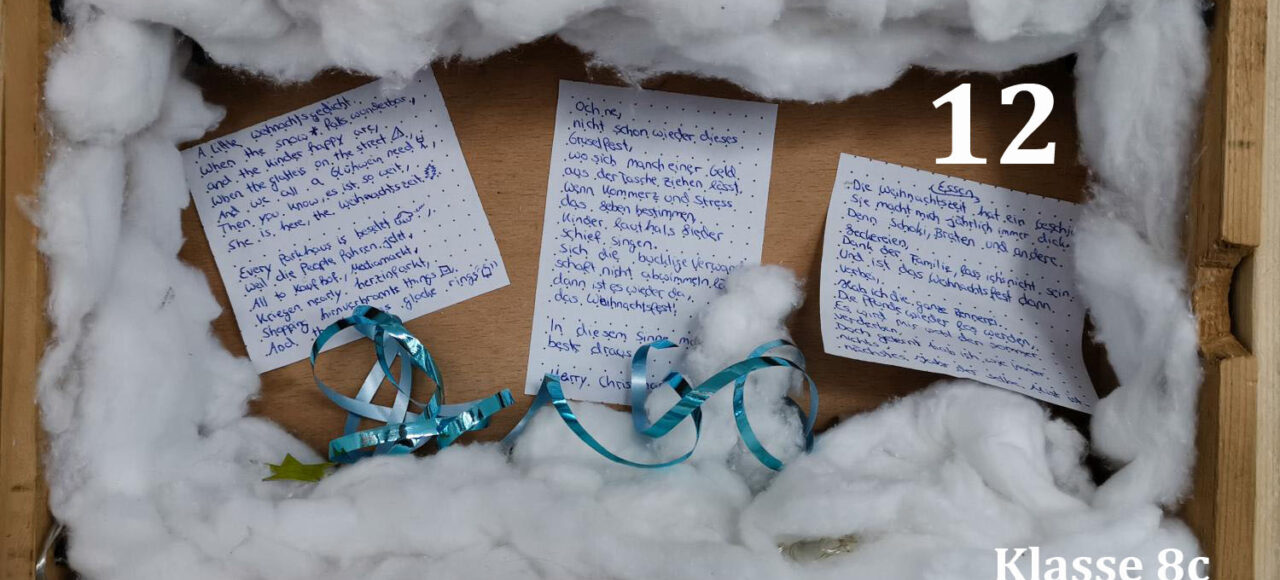 A little Weihnachtsgedicht
When the snow falls wunderbar,
and the Kinder happy are,
When the glatteis on the street,
And we all a Glühwein need,
Then you know, es ist so weit,
She is here, the weihnachtszeit.
Every Parkhaus is besetzt
weil die People fahren jetzt,
All to Kaufhof, Mediamarkt,
Kriegen nearly herzinfarkt,
Shopping hirnverbrannte things
And the glocke rings
Och ne,
nicht schon wieder dieses
Gruselfest,
wo sich manch einer Geld
aus der Tasche ziehen lässt.
Wenn Kommerz und Stress
das Leben bestimmen,
Kinder lauthals Lieder
schief singen.
Sich die bucklige
schaft nicht abwimmeln
dann ist es wieder da,
das Weihnachtsfest!
In diesem Sinne
beste draus
Merry
12
Essen
Die Weihnachtszeit hat ein
Sie macht mich jährlich immer dick.
Denn Schoki, Braten und andere
Leckereien,
Dank der Familie, lass ich nicht sein.
Und ist das Weihnachtsfest dann
vorbei,
Hab ich die ganze Rennerei.
Die Pfunde wieder los werden,
Es wird mir wohl den Sommer
verderben.
Doch gelernt hab ich, wie immer,
nichts
nächsten Jahr
Klasse 8c